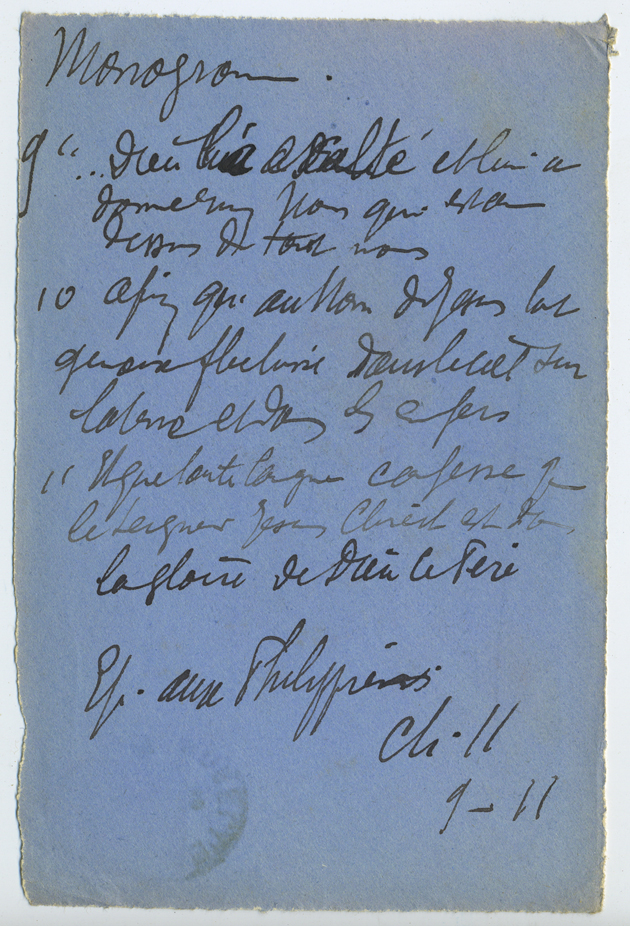 Monogram.
9 "... Dieu l'a exalté et lui a
donné un Nom qui est au
dessus de tout nom
10 afin qu'au Nom de Jésus tout
genoux fléchisse dans le ciel sur
la terre et dans les enfers
11 Et que toute langue confesse que
le Seigneur Jesus Christ est dans
la gloire de Dieu le Père
Ep. aux Philippiens
Ch. II
9 - 11